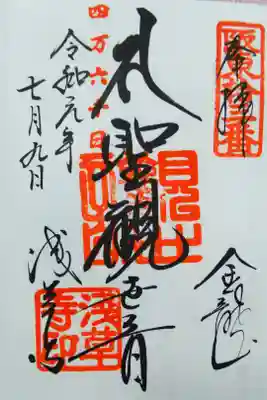 奉拝
金龍山
礼聖観世音
四万六千日
令和元年
七月九日
浅草寺
淺草寺印